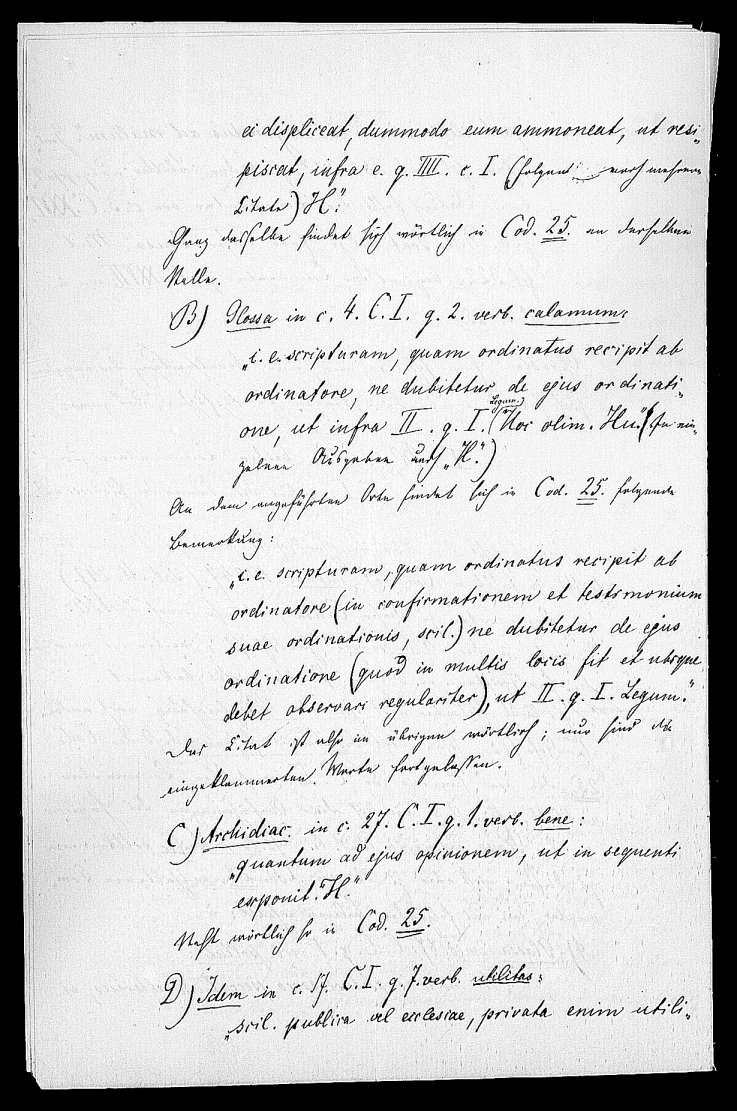 ei displiceat, dummodo eum ammoneat, ut resi-
piscat, infra e. q. IIII. c. I. (folgend noch mehrere
Citate) H."
Ganz dasselbe findet sich wörtlich in Cod. 25. an derselben
Stelle.
B) Glossa in c. 4. C. I. q. 2. verb. calamum:
"i. e. scripturam, quam ordinatus recipit ab
ordinatore, ne dubitetur de ejus ordinati-
one, ut infra II. q. I. (Legum.) Hoc olim. Hu." (In ein-
zelnen Ausgaben auch "H.")
An dem angeführten Orte findet sich in Cod. 25. folgende
Bemerkung:
"i. e. scripturam, quam ordinatus recipit ab
ordinatore (in confirmationem et testimonium
suae ordinationis, scil.) ne dubitetur de ejus
ordinatione (quod in multis locis fit et ubique
debet observari regulariter), ut II. q. I. Legum."
Das Citat ist also im übrigen wörtlich; nur sind die
eingeklammerten Worte fortgelassen.
C) Archidiac. in c. 27. C. I. q. 1. verb. bene:
"quantum ad ejus opinionem, ut in sequenti
exponit. H."
Steht wörtlich so in Cod. 25.
D) Idem in c. 17. C. I. q. 7. verb. utilitas:
"scil. publica vel ecclesiae, privata enim utili-